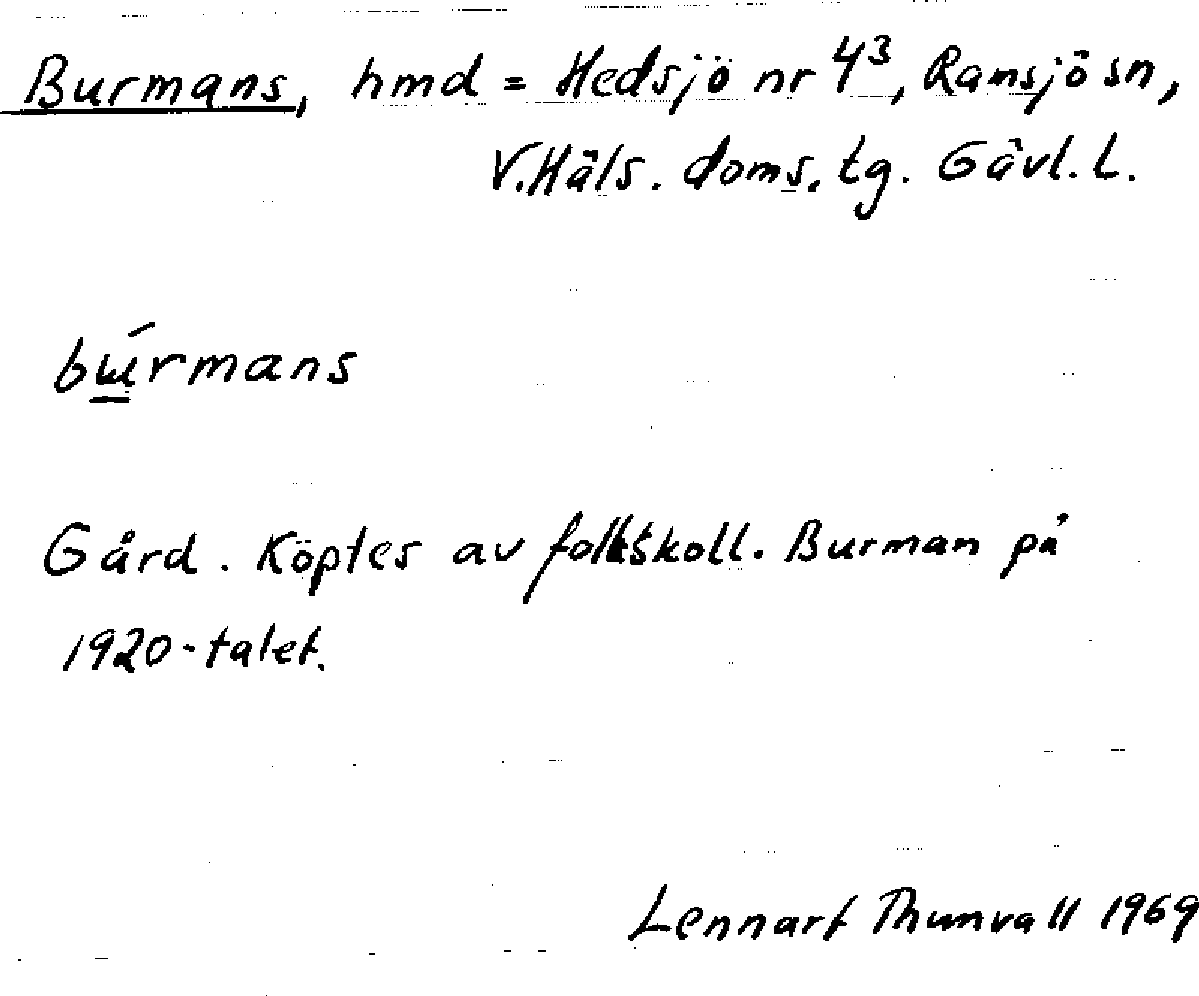 Burmans, hmd = Hedsjö nr 4³, Ramsjö sn,
V. Häls. doms. tg. Gävl. L.
bɯ́rmans
Gård. Köptes av folkskoll. Burman på
1920-talet.
Lennart Thunvall 1969